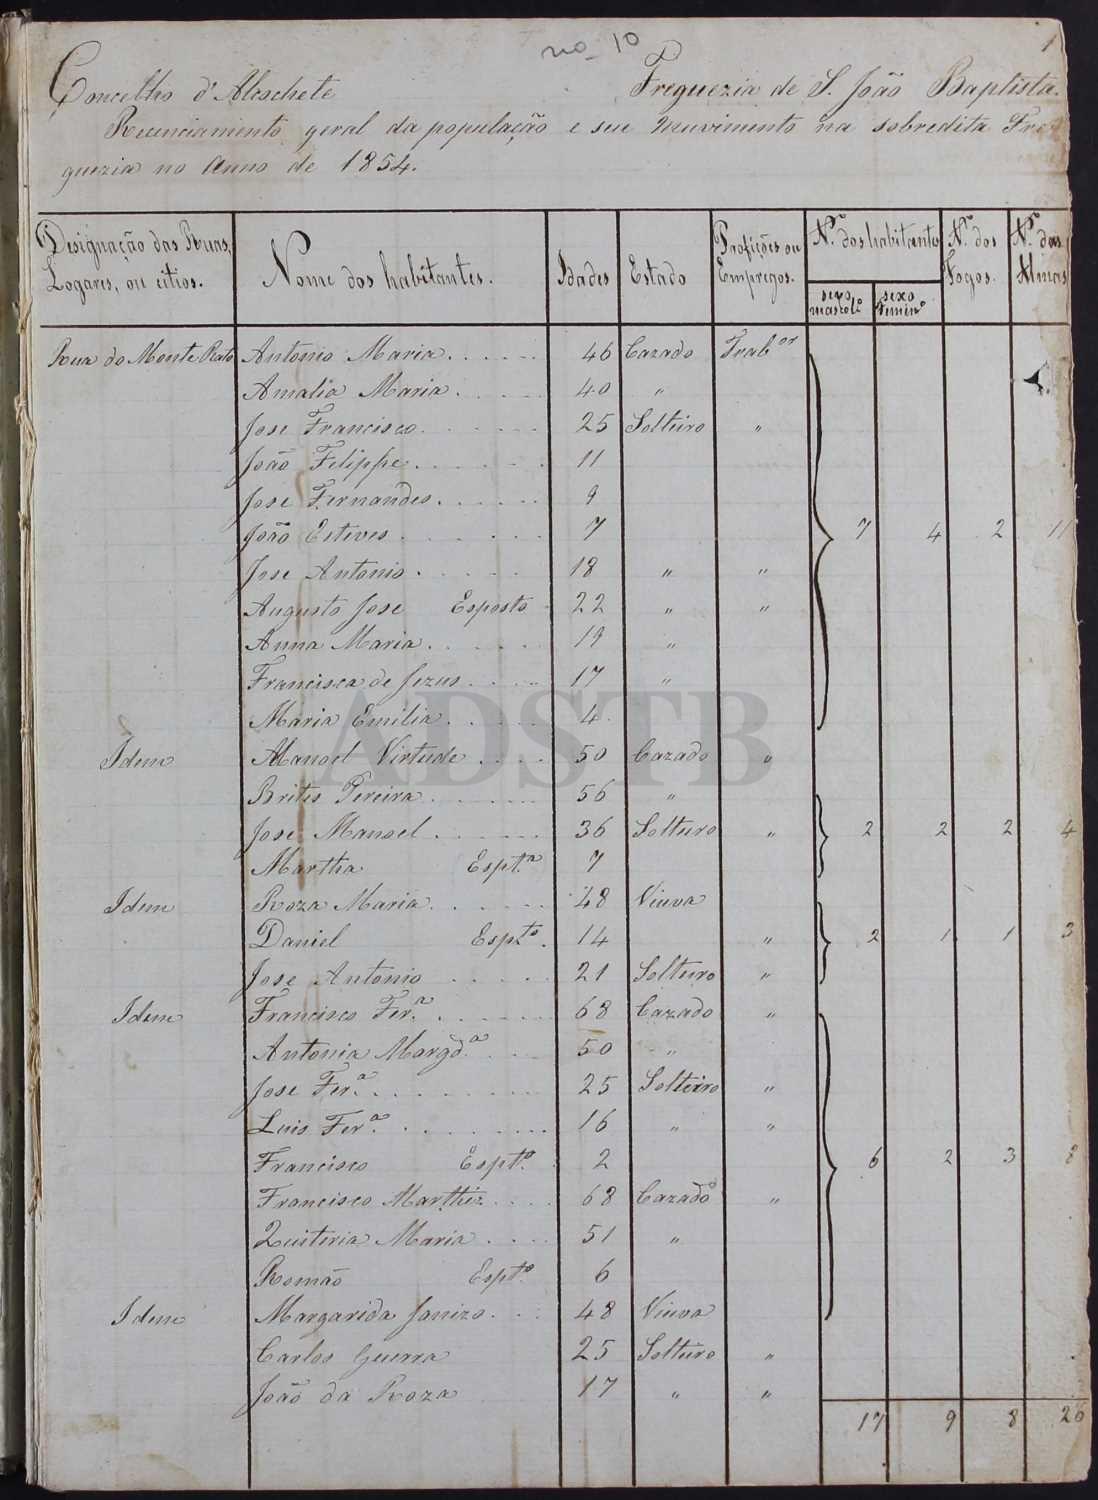 no 10
1
Concelho d'Alcochete Freguezia de S. João Baptista.
Recenciamento geral da população e seu muvimento na sobredita Fre
guezia no Anno de 1854.
Designação das Ruas, Logares, ou citios. Nome dos habitantes. Idades Estado Profições ou Empregos. Nº dos habitantes Nº dos Fogos. Nº das Almas
sexo mascolº sexo feminº
Rua do Monte Rato Antonio Maria 46 Cazado Trab.or
Amalia Maria 40 "
Jose Francisco 25 Solteiro "
João Filippe 11
Jose Fernandes 9
João Esteves 7 7 4 2 11
Jose Antonio 18 " "
Augusto Jose Esposto 22 " "
Anna Maria 19 "
Francisca de Jezus 17 "
Maria Emilia 4
Idem Manoel Virtude 50 Cazado "
Brites Pereira 56 "
Jose Manoel 36 Solteiro " 2 2 2 4
Martha Espt.a 7
Idem Roza Maria 48 Viuva
Daniel Espt.to 14 " 2 1 1 3
Jose Antonio 21 Solteiro "
Idem Francisco Fer.a 68 Cazado "
Antonia Margd.a 50 "
Jose Fer.a 25 Solteiro "
Luis Fer.a 16 " "
Francisco Espt.o 2 6 2 3 8
Francisco Marttiz 68 Cazado "
Quiteria Maria 51 "
Romão Espt.o 6
Idem Margarida Janizo 48 Viuva
Carlos Guerra 25 Solteiro "
João da Roza 17 " "
17 9 8 26
ADSTB